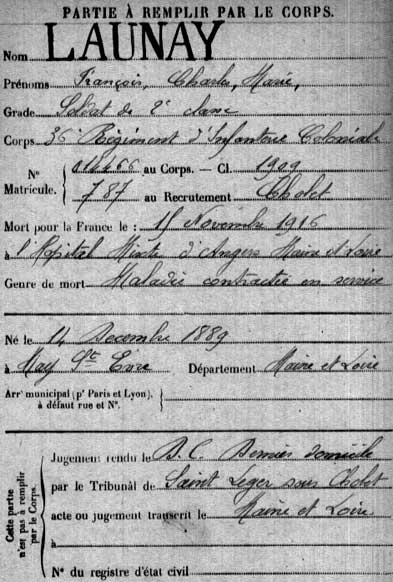 PARTIE À REMPLIR PAR LE CORPS.
Nom LAUNAY
Prénoms François, Charles, Marie,
Grade Soldat de 2e classe
Corps 36e Régiment d'Infanterie Coloniale
N° Matricule. { 014466 au Corps. — Cl. 1909
787 au Recrutement Cholet
Mort pour la France le : 15 Novembre 1916
à l'Hôpital Mixte d'Angers Maine et Loire
Genre de mort Maladie contractée en service
Né le 14 Décembre 1889
à May Ste Evre Département Maine et Loire
Arrt municipal (pr Paris et Lyon), à défaut rue et N°.
Cette partie n'est pas à remplir par le Corps.
Jugement rendu le D.C. Dernier domicile
par le Tribunal de Saint Leger sous Cholet
acte ou jugement transcrit le Maine et Loire
à
N° du registre d'état civil